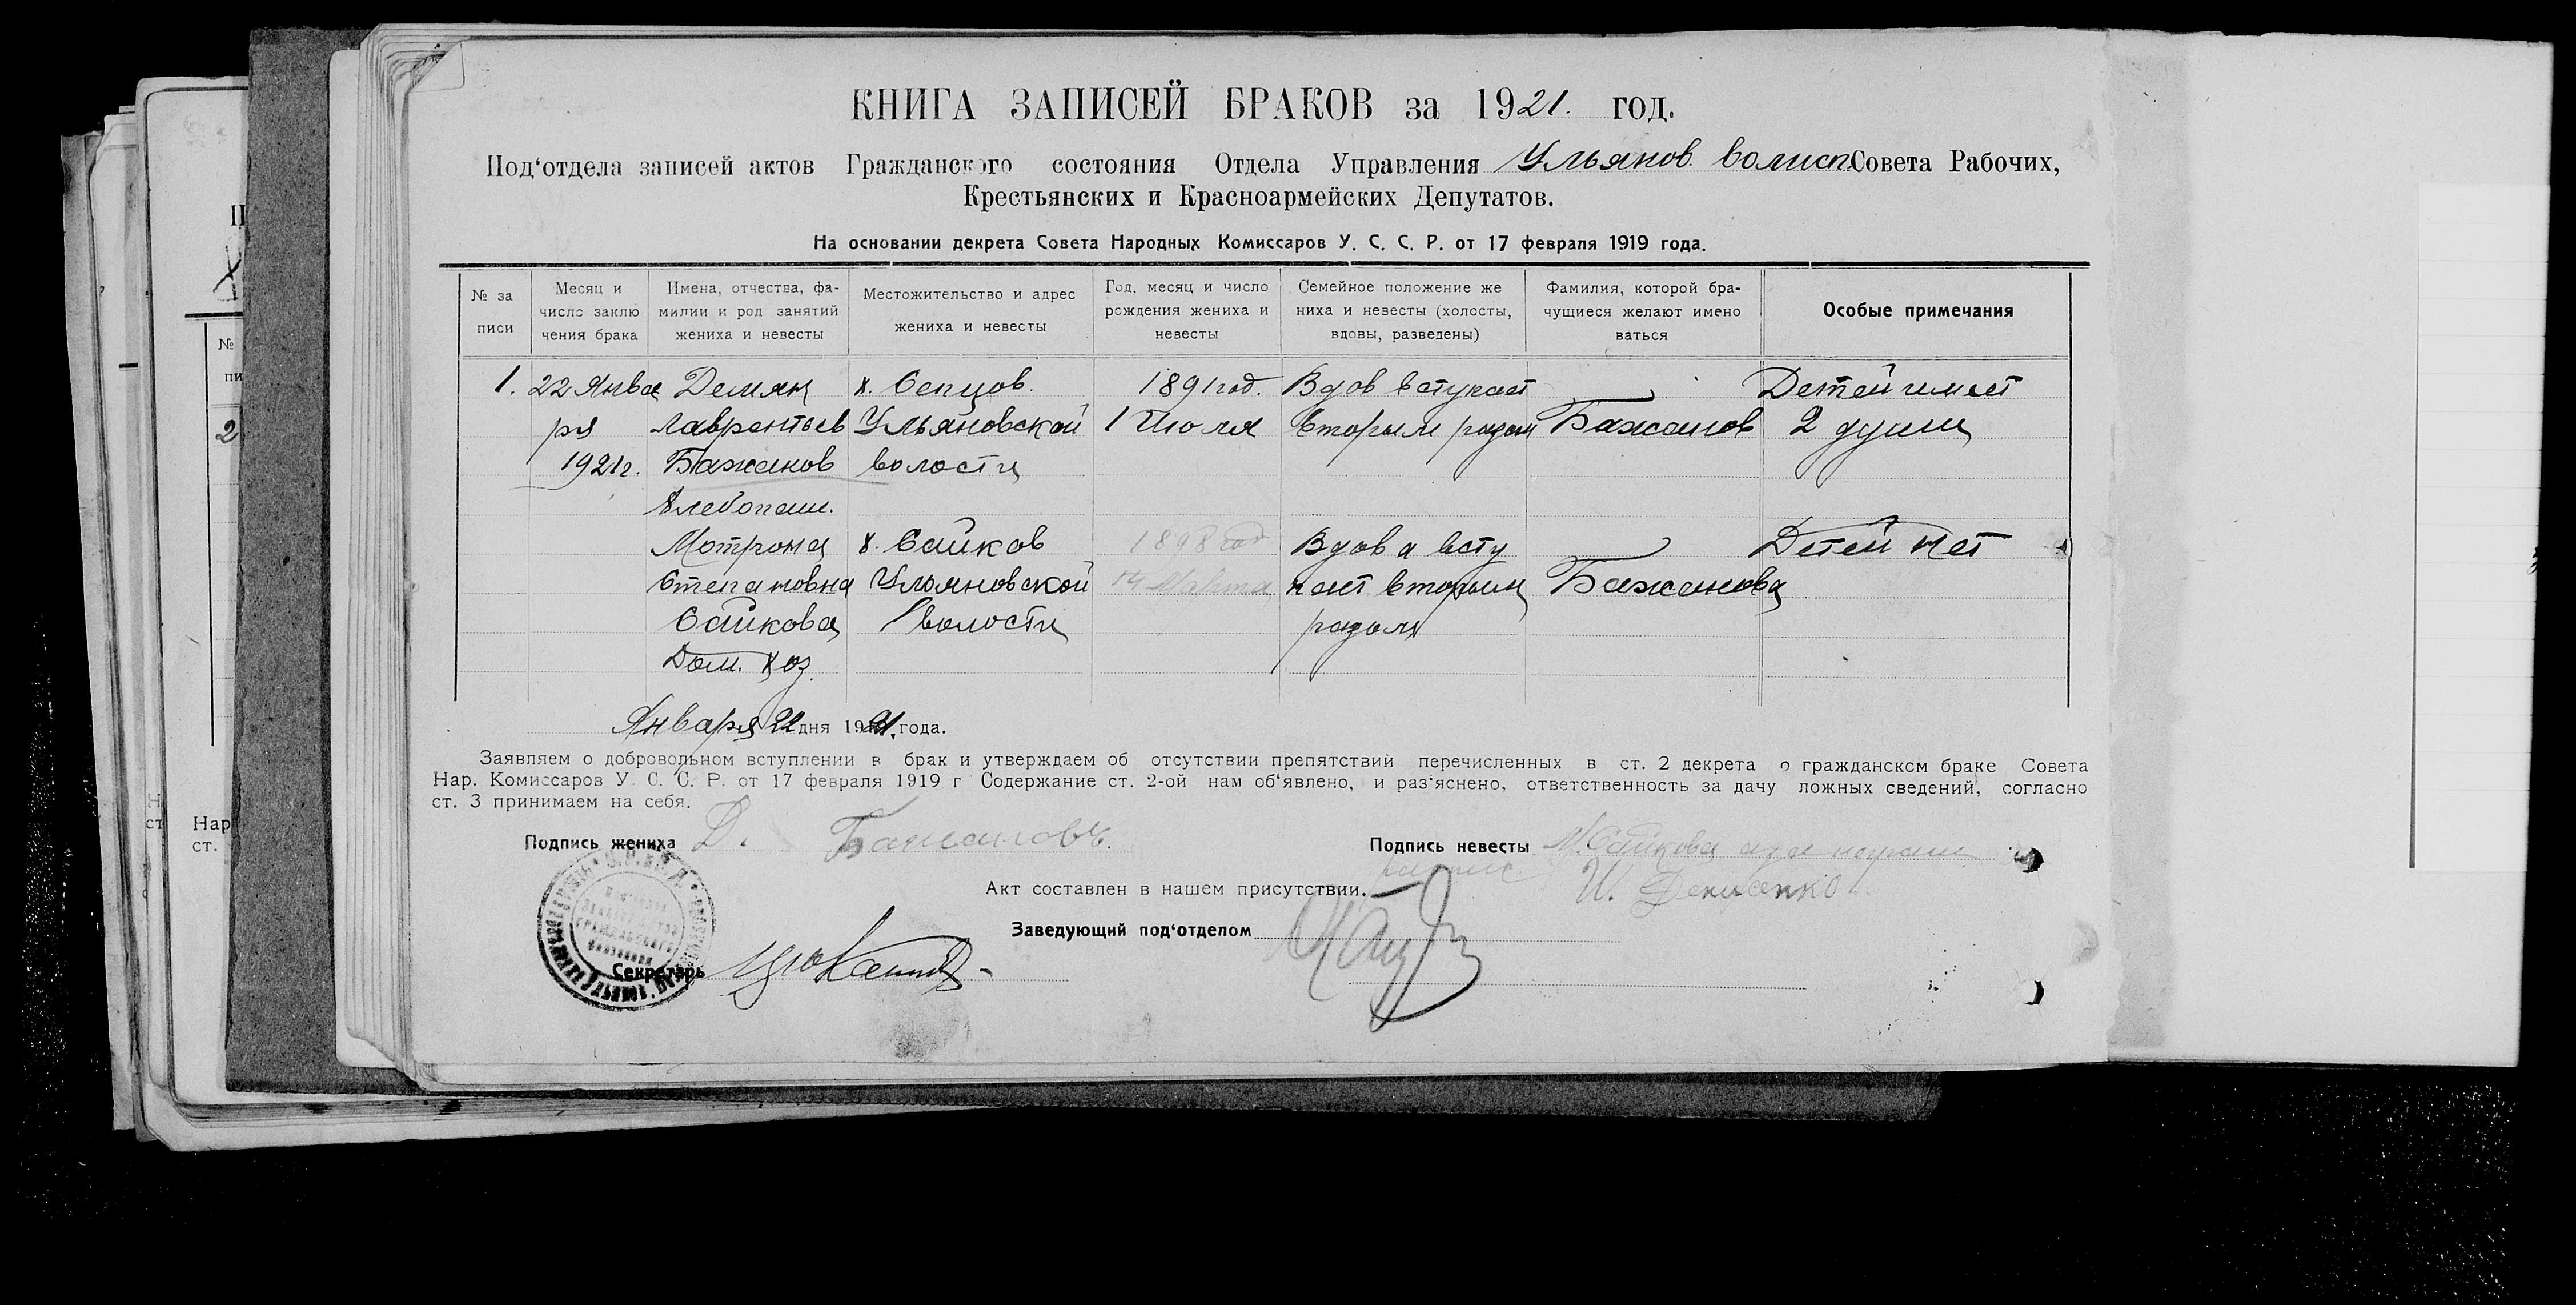 КНИГА ЗАПИСЕЙ БРАКОВ за 1921. год.
Под‘отдела записей актов Гражданского состояния Отдела Управления Ульянов. волисп. Совета Рабочих,
Крестьянских и Красноармейских Депутатов.
На основании декрета Совета Народных Комиссаров У. С. С. Р. от 17 февраля 1919 года.
№ за
писи
Месяц и
число заклю
чения брака
Имена, отчества, фа-
милии и род занятий
жениха и невесты
Местожительство и адрес
жениха и невесты
Год, месяц и число
рождения жениха и
невесты
Семейное положение же
ниха и невесты (холосты,
вдовы, разведены)
Фамилия, которой бра-
чущиеся желают имено
ваться
Особые примечания
1.
22 Янва
ря
1921 г.
Демян
Лаврентьев
Бажанов
Хлебопаш.
х.
Ульяновской
волости
1891 год.
1 Июля
Вдов вступает
вторым разом
Бажанов
Детей имеет
2 души
Мотрона
Степановна
Сайкова
Дом. хоз.
х. Сайков
Ульяновской
волости
1898 год
Марта
Вдова всту
пает вторым
разом
Бажанова
Детей нет
Января 22 дня 1921 года.
Заявляем о добровольном вступлении в брак и утверждаем об отсутствии препятствий перечисленных в ст. 2 декрета о гражданском браке Совета
Нар. Комиссаров У. С. С. Р. от 17 февраля 1919 г Содержание ст. 2-ой нам об‘явлено, и раз‘яснено, ответственность за дачу ложных сведений, согласно
ст. 3 принимаем на себя.
Подпись жениха Д. Бажановъ.
Подпись невесты М. Сайкова
И. Денисенко
Акт составлен в нашем присутствии.
Заведующий под‘отделом
Секретарь
№
пи
2
Нар
ст.